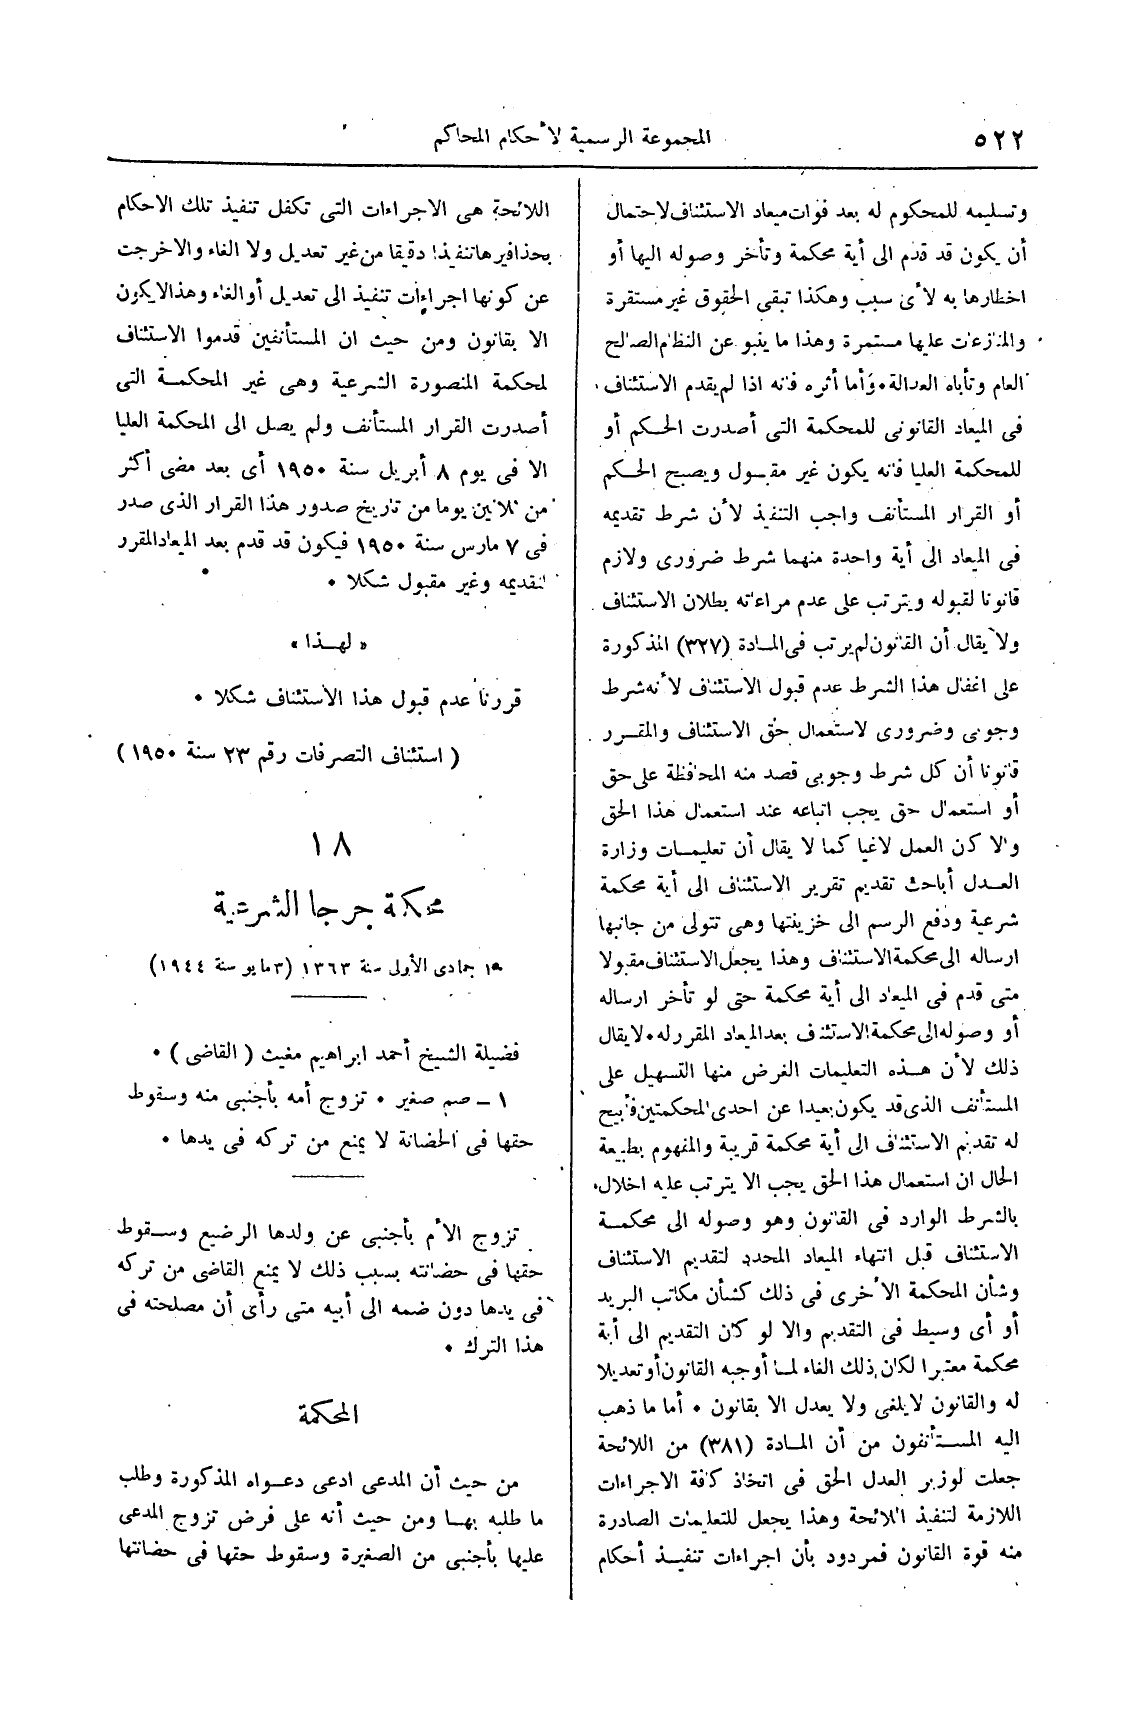 ٥٢٢
المجموعة الرسمية لأحكام المحاكم
وتسليمه للمحكوم له بعد فوات ميعاد الاستئناف لاحتمال
أن يكون قد قدم الى أية محكمة وتأخر وصوله اليها أو
اخطارها به لأى سبب وهكذا تبقى الحقوق غير مستقرة
والمنازعات عليها مستمرة وهذا ما ينبو عن النظام الصالح
العام وتأباه العدالة • وأما أثره فانه اذا لم يقدم الاستئناف
فى الميعاد القانونى للمحكمة التى أصدرت الحكم أو
للمحكمة العليا فانه يكون غير مقبول ويصبح الحكم
أو القرار المستأنف واجب التنفيذ لأن شرط تقديمه
فى الميعاد الى أية واحدة منهما شرط ضرورى ولازم
قانونا لقبوله ويترتب على عدم مراعاته بطلان الاستئناف
ولا يقال أن القانون لم يرتب فى المادة (٣٢٧) المذكورة
على اغفال هذا الشرط عدم قبول الاستئناف لأنه شرط
وجوبى وضرورى لاستعمال حق الاستئناف والمقرر
قانونا أن كل شرط وجوبى قصد منه المحافظة على حق
أو استعمال حق يجب اتباعه عند استعمال هذا الحق
والا كان العمل لاغيا كما لا يقال أن تعليمات وزارة
العدل أباحت تقديم تقرير الاستئناف الى أية محكمة
شرعية ودفع الرسم الى خزينتها وهى تتولى من جانبها
ارساله الى محكمة الاستئناف وهذا يجعل الاستئناف مقبولا
متى قدم فى الميعاد الى أية محكمة حتى لو تأخر ارساله
أو وصوله الى محكمة الاستئناف بعد الميعاد المقرر له • لا يقال
ذلك لأن هذه التعليمات الغرض منها التسهيل على
المستأنف الذى قد يكون بعيدا عن احدى المحكمتين فأبيح
له تقديم الاستئناف الى أية محكمة قريبة والمفهوم بطبيعة
الحال ان استعمال هذا الحق يجب الا يترتب عليه اخلال
بالشرط الوارد فى القانون وهو وصوله الى محكمة
الاستئناف قبل انتهاء الميعاد المحدد لتقديم الاستئناف
وشأن المحكمة الأخرى فى ذلك كشأن مكاتب البريد
أو أى وسيط فى التقديم والا لو كان التقديم الى أية
محكمة معتبرا لكان ذلك الغاء لما أوجبه القانون أو تعديلا
له والقانون لا يلغى ولا يعدل الا بقانون • أما ما ذهب
اليه المستأنفون من أن المادة (٣٨١) من اللائحة
جعلت لوزير العدل الحق فى اتخاذ كافة الاجراءات
اللازمة لتنفيذ اللائحة وهذا يجعل للتعليمات الصادرة
منه قوة القانون فمردود بأن اجراءات تنفيذ أحكام
اللائحة هى الاجراءات التى تكفل تنفيذ تلك الاحكام
بحذافيرها تنفيذا دقيقا من غير تعديل ولا الغاء والا خرجت
عن كونها اجراءات تنفيذ الى تعديل أو الغاء وهذا لا يكون
الا بقانون ومن حيث ان المستأنفين قدموا الاستئناف
لمحكمة المنصورة الشرعية وهى غير المحكمة التى
أصدرت القرار المستأنف ولم يصل الى المحكمة العليا
الا فى يوم ٨ أبريل سنة ١٩٥٠ أى بعد مضى أكثر
من ثلاثين يوما من تاريخ صدور هذا القرار الذى صدر
فى ٧ مارس سنة ١٩٥٠ فيكون قد قدم بعد الميعاد المقرر
لتقديمه وغير مقبول شكلا •
« لهذا »
قررنا عدم قبول هذا الاستئناف شكلا •
( استئناف التصرفات رقم ٢٣ سنة ١٩٥٠ )
١٨
محكمة جرجا الشرعية
١٠ جمادى الأولى سنة ١٣٦٣ (٣ مايو سنة ١٩٤٤)
فضيلة الشيخ أحمد ابراهيم مغيث ( القاضى ) •
١ – ضم صغير • تزوج أمه بأجنبى منه وسقوط
حقها فى الحضانة لا يمنع من تركه فى يدها •
تزوج الأم بأجنبى عن ولدها الرضيع وسقوط
حقها فى حضانته بسبب ذلك لا يمنع القاضى من تركه
فى يدها دون ضمه الى أبيه متى رأى أن مصلحته فى
هذا الترك •
المحكمة
من حيث أن المدعى ادعى دعواه المذكورة وطلب
ما طلبه بها ومن حيث أنه على فرض تزوج المدعى
عليها بأجنبى من الصغيرة وسقوط حقها فى حضانتها